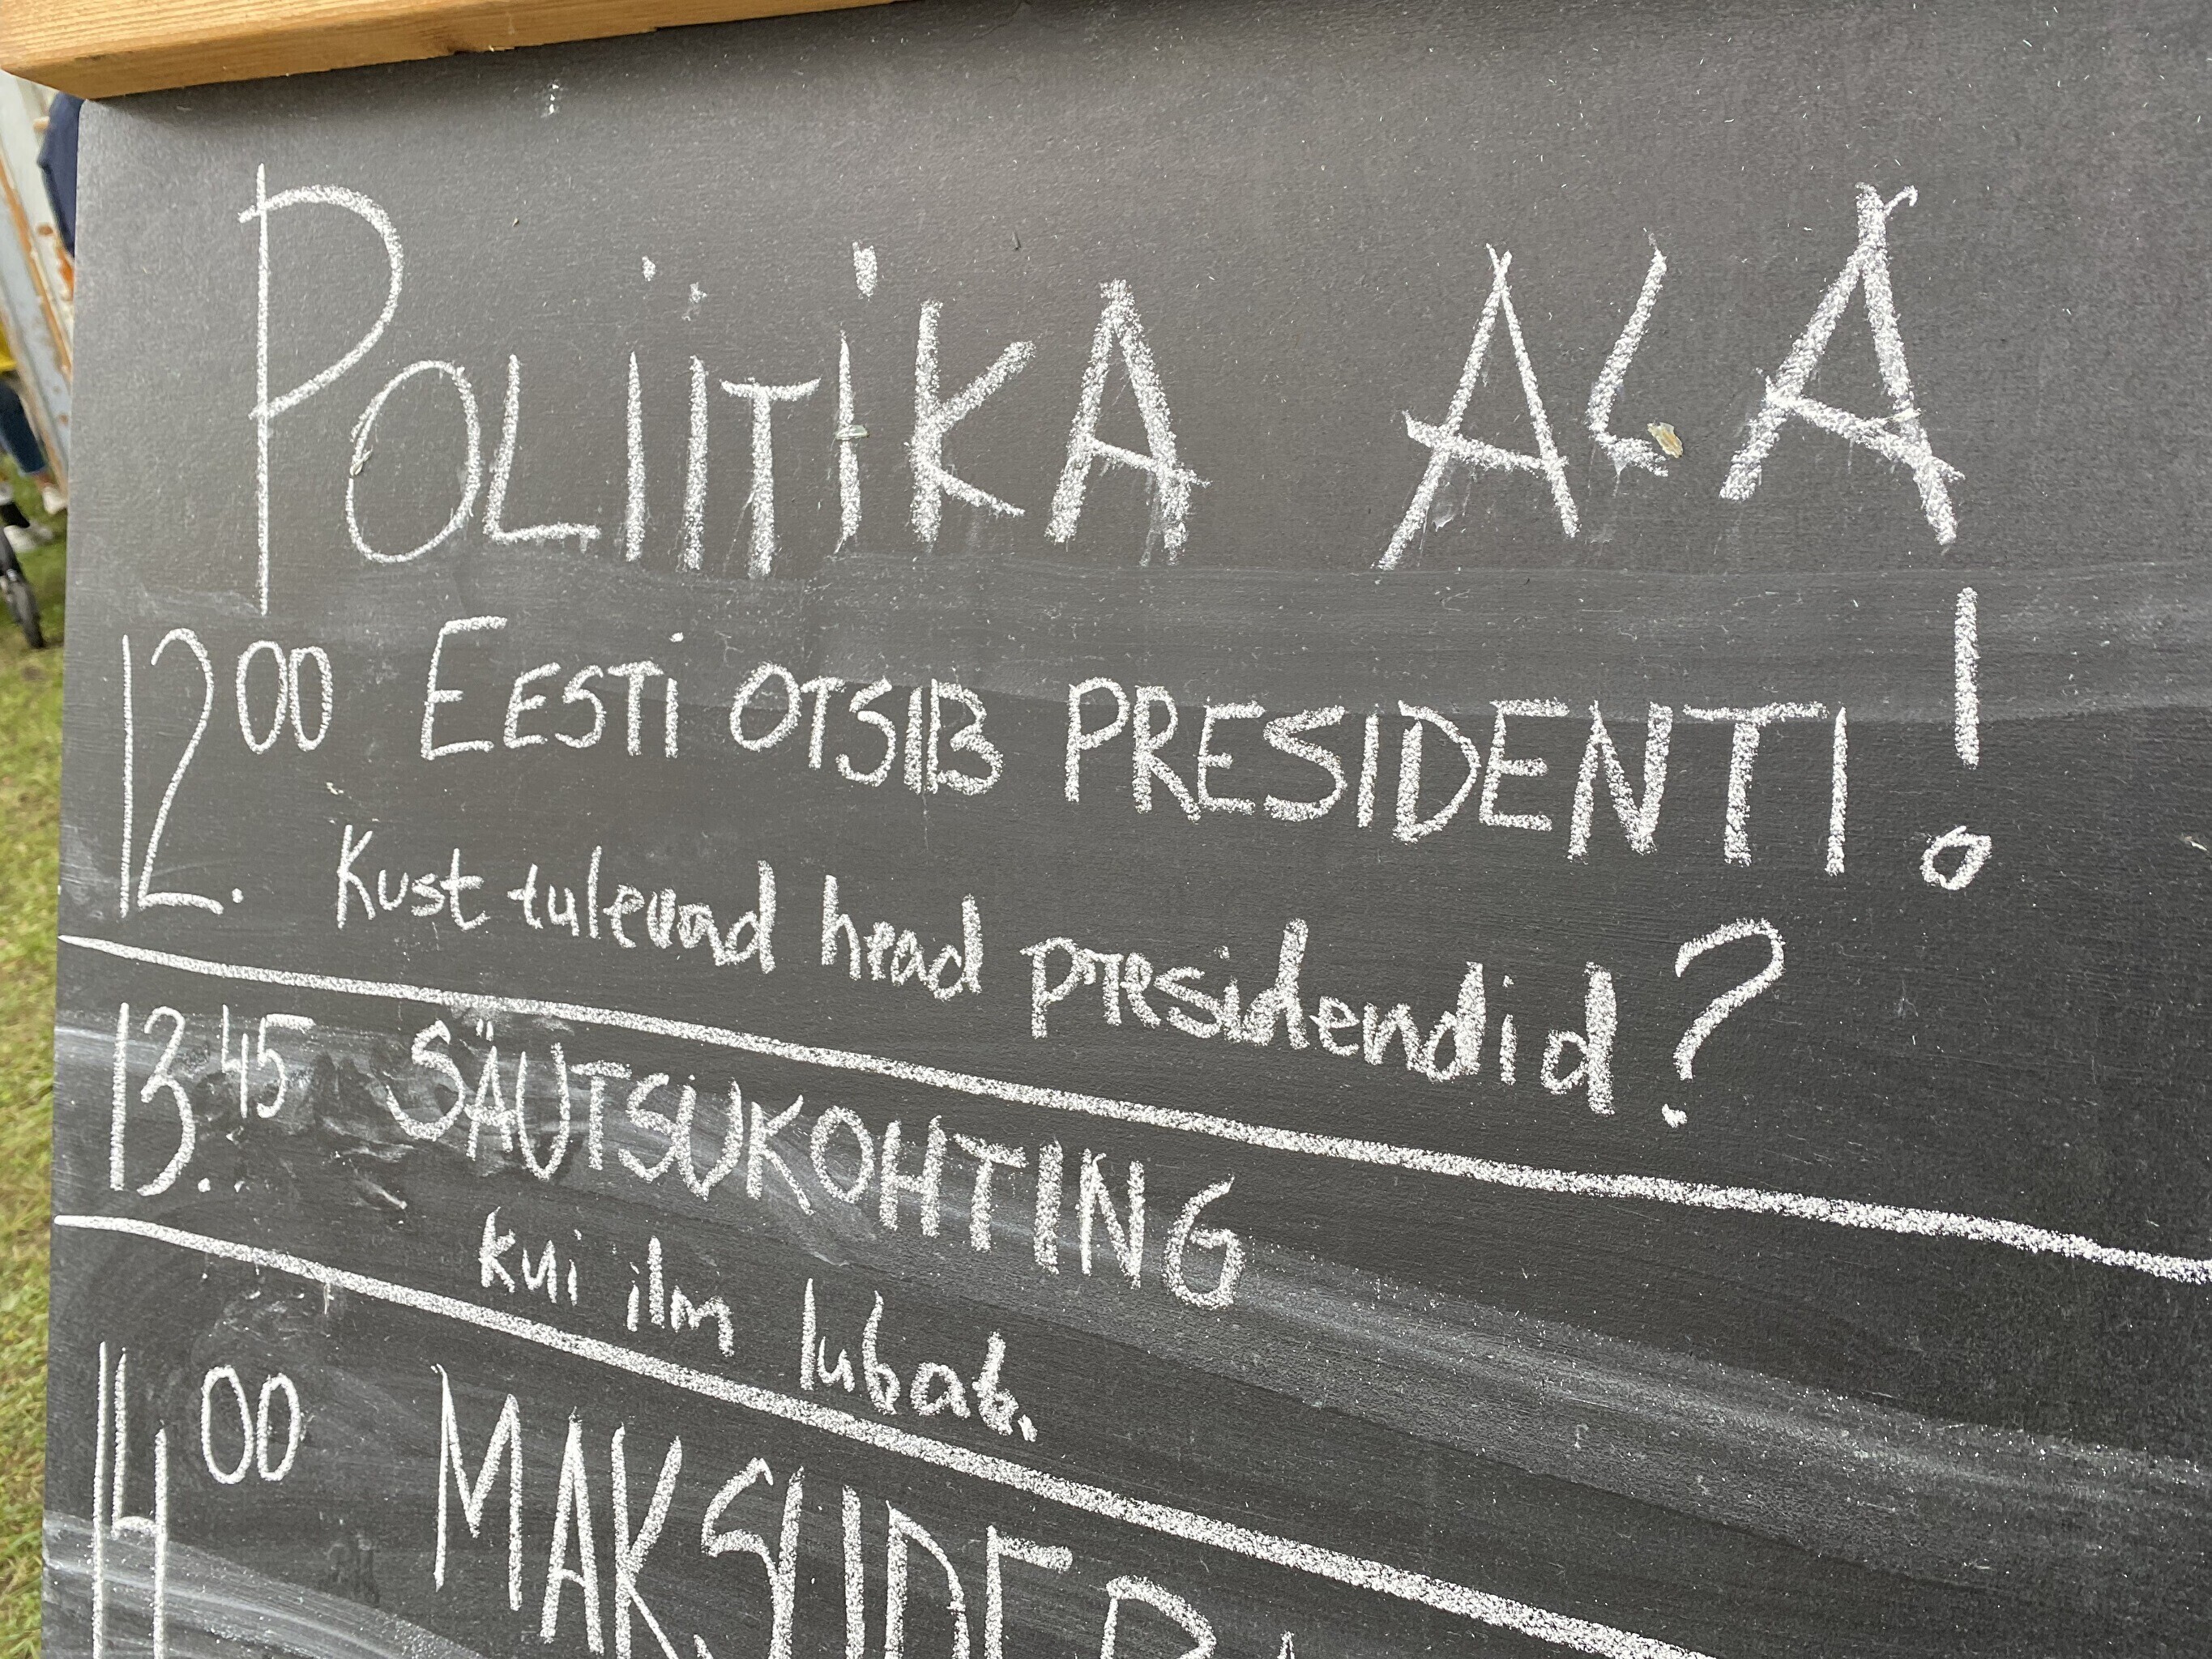 POLIITIKA ALA
12.00 EESTI OTSIB PRESIDENTI!
Kust tulevad head presidendid?
13.45 SÄUTSUKOHTING
kui ilm lubab.
14 00 MAKSUDE